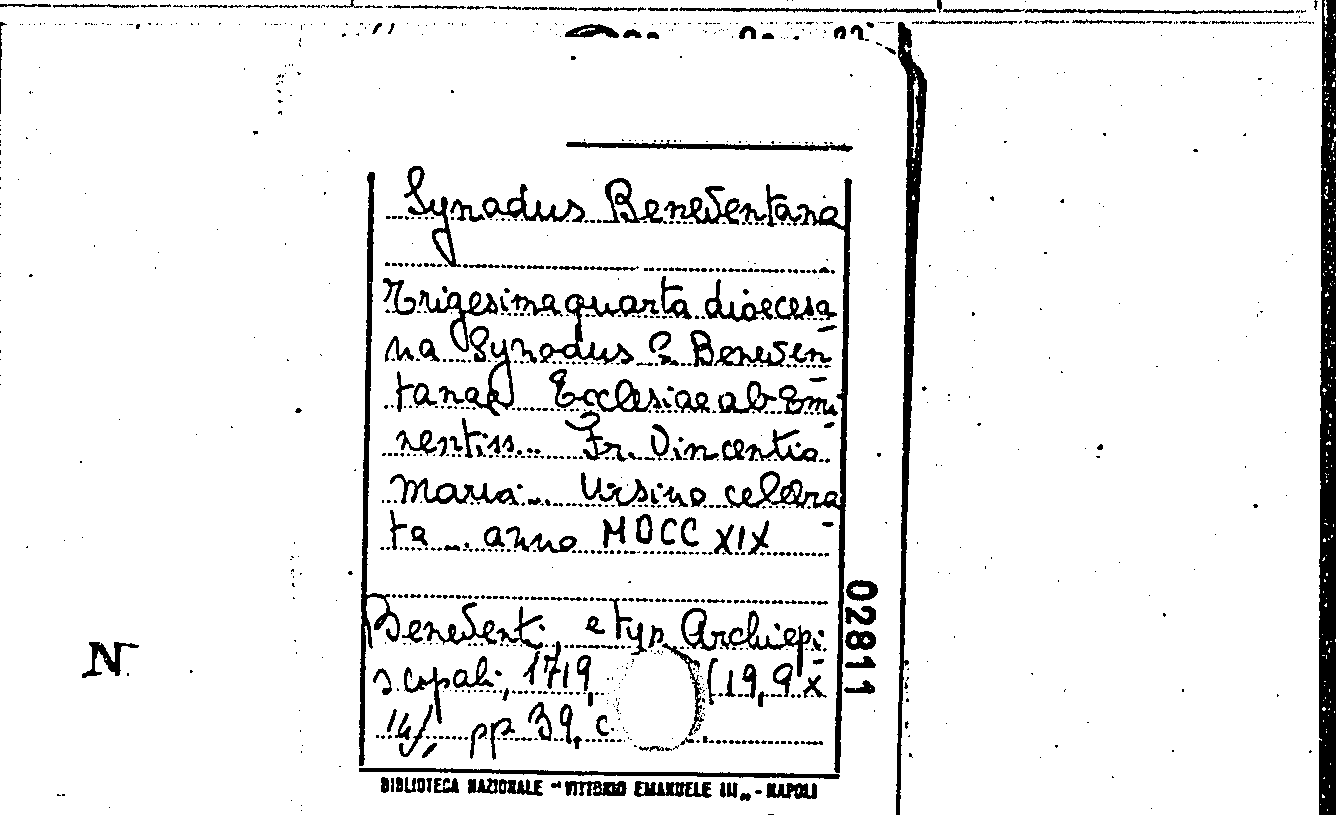 Synodus Beneventana
Trigesimaquarta dioecesa
na Synodus S. Beneven
tanae Ecclesiae ab Emi
nentiss... Fr. Vincentio
Maria... Ursino celebra
ta... anno MDCCXIX
Benevent. e typ. Archiepi
scopali, 1719, (19,9x
14), pp. 39, c.
02811
N
BIBLIOTECA NAZIONALE "VITTORIO EMANUELE III" - NAPOLI